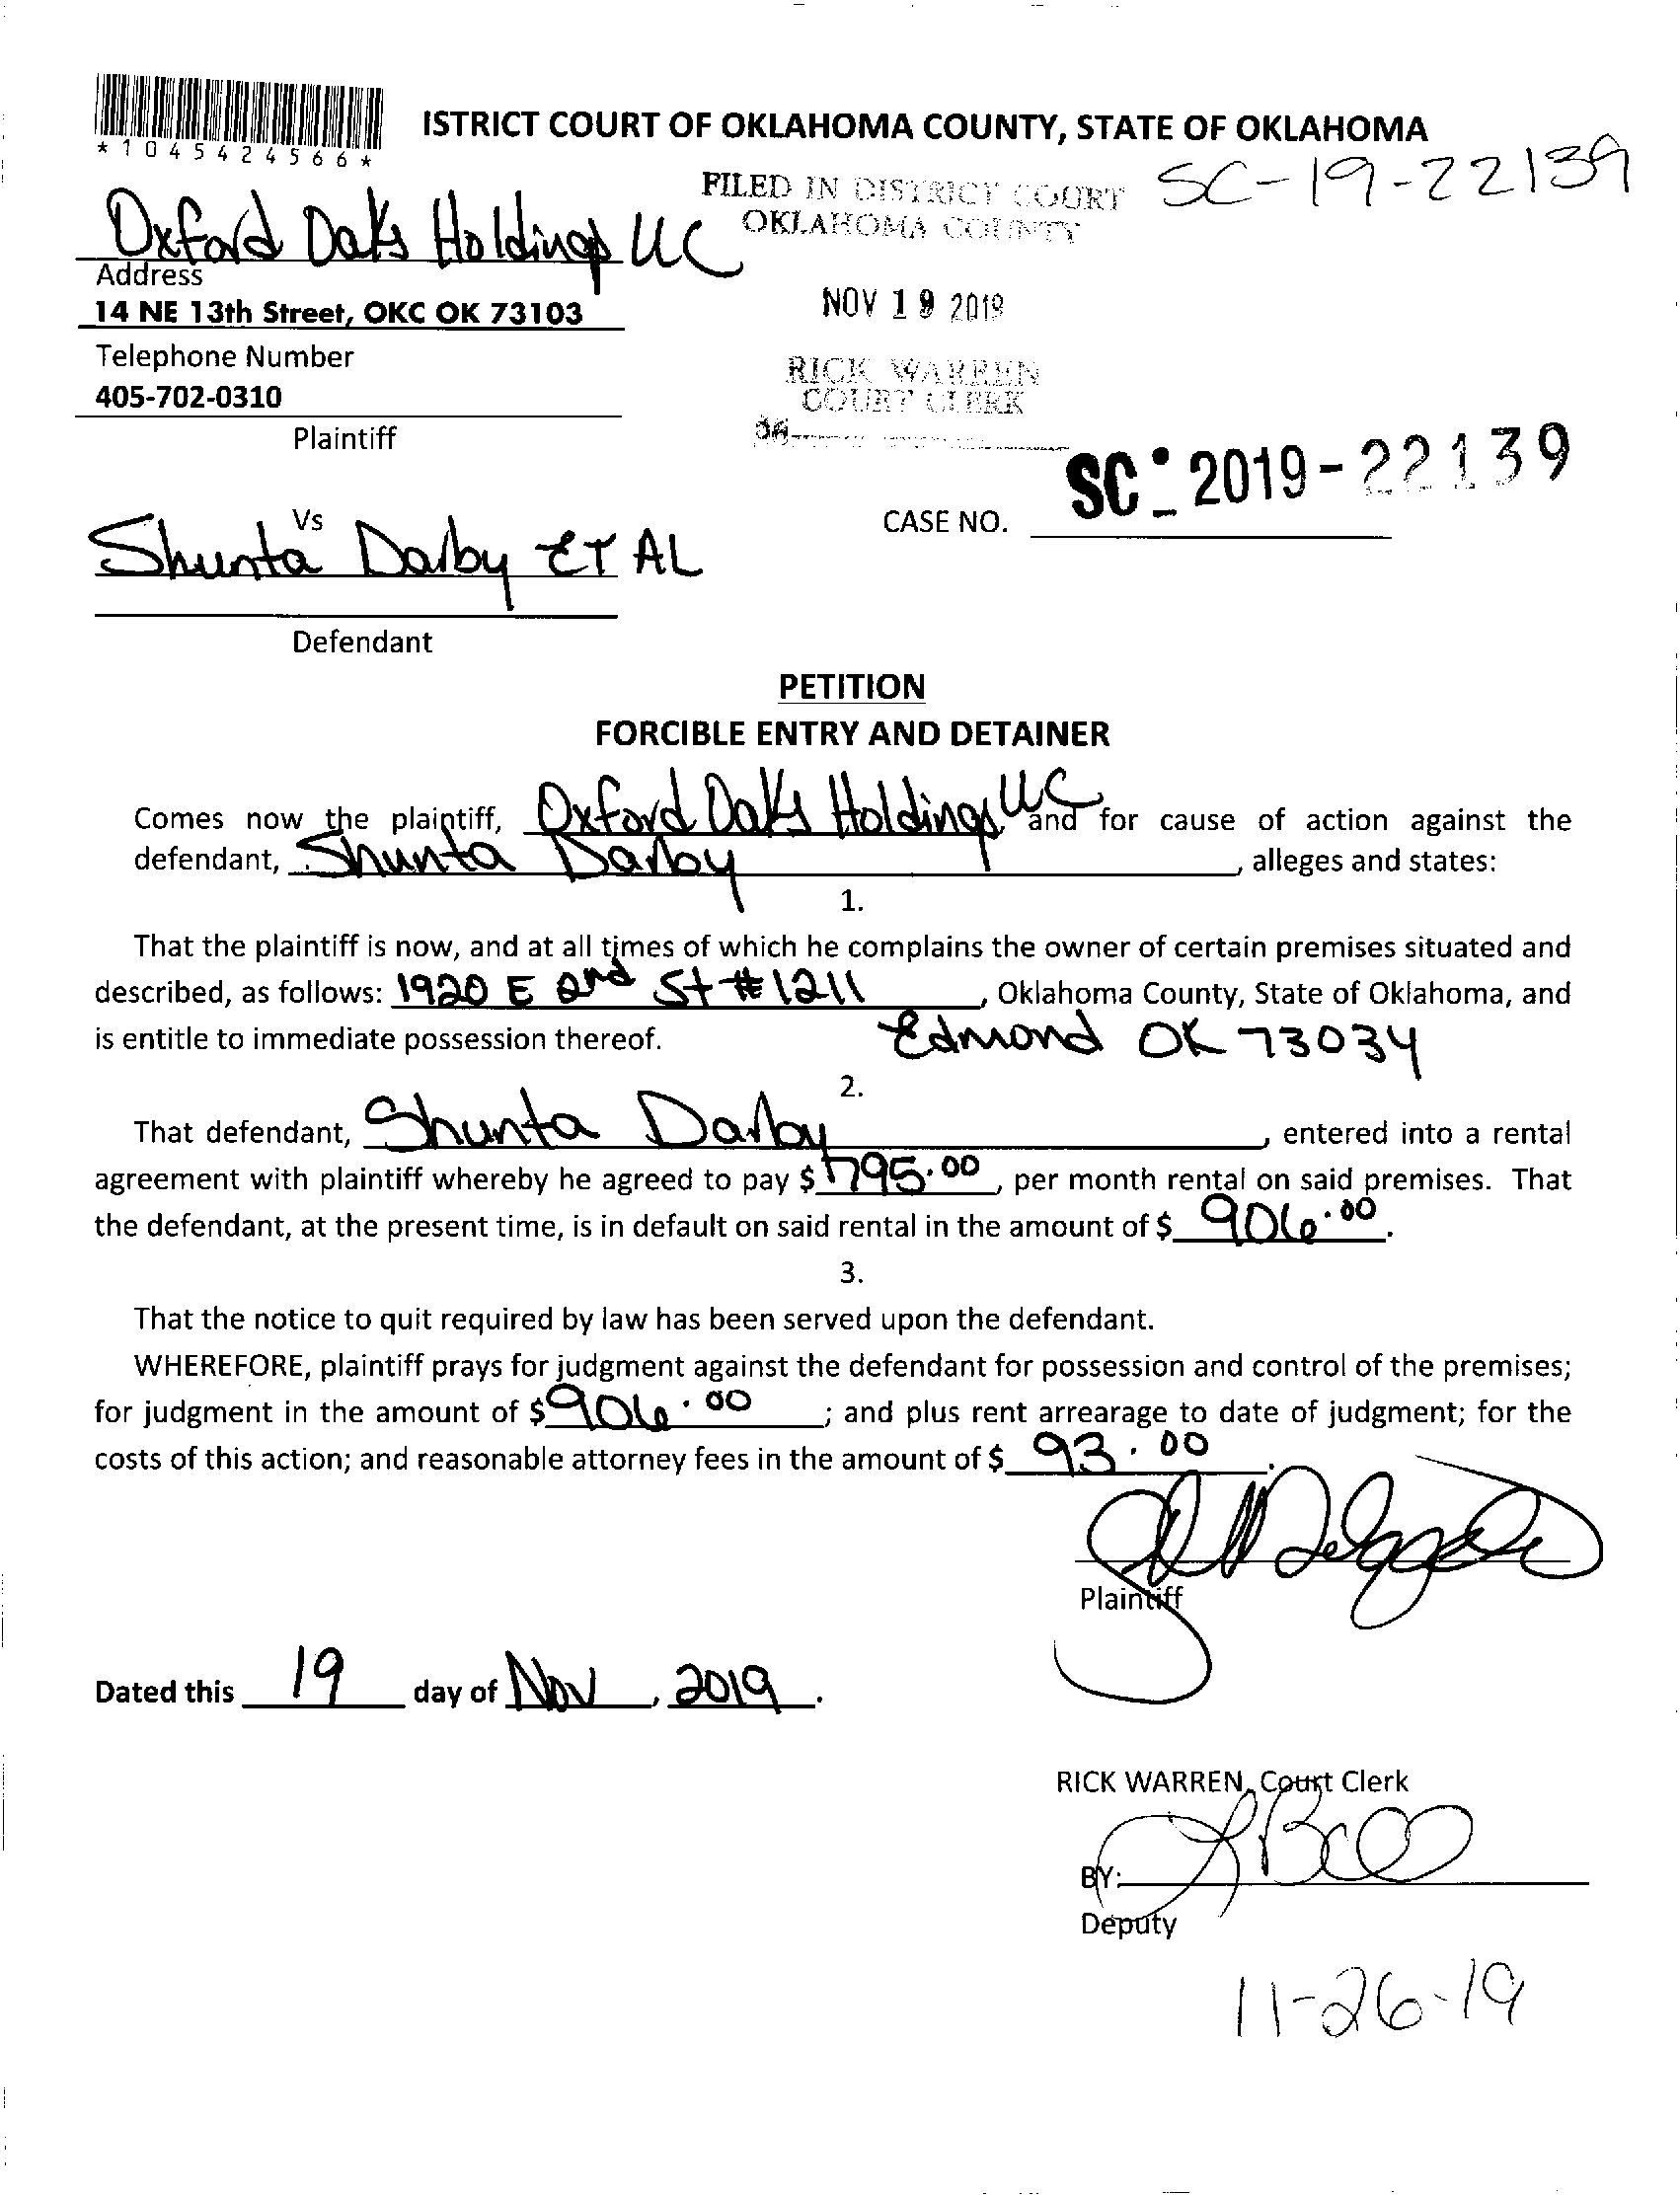 *1045424566*
ISTRICT COURT OF OKLAHOMA COUNTY, STATE OF OKLAHOMA
SC-19-22139
FILED IN DISTRICT COURT
OKLAHOMA COUNTY
Oxford Oaks Holdings LLC
Address
14 NE 13th Street, OKC OK 73103
NOV 19 2019
Telephone Number
405-702-0310
RICK WARREN
COURT CLERK
Plaintiff
SC-2019-22139
Vs
CASE NO.
Shunta Darby ET AL
Defendant
PETITION
FORCIBLE ENTRY AND DETAINER
Comes now the plaintiff, Oxford Oaks Holdings, LLC and for cause of action against the
defendant, Shunta Darby, alleges and states:
1.
That the plaintiff is now, and at all times of which he complains the owner of certain premises situated and
described, as follows: 1920 E 2nd St #1211, Oklahoma County, State of Oklahoma, and
is entitle to immediate possession thereof. Edmond OK 73034
2.
That defendant, Shunta Darby, entered into a rental
agreement with plaintiff whereby he agreed to pay $795.00, per month rental on said premises. That
the defendant, at the present time, is in default on said rental in the amount of $906.00.
3.
That the notice to quit required by law has been served upon the defendant.
WHEREFORE, plaintiff prays for judgment against the defendant for possession and control of the premises;
for judgment in the amount of $906.00; and plus rent arrearage to date of judgment; for the
costs of this action; and reasonable attorney fees in the amount of $93.00.
Plaintiff
Dated this 19 day of Nov, 2019.
RICK WARREN, Court Clerk
BY:
Deputy
11-26-19